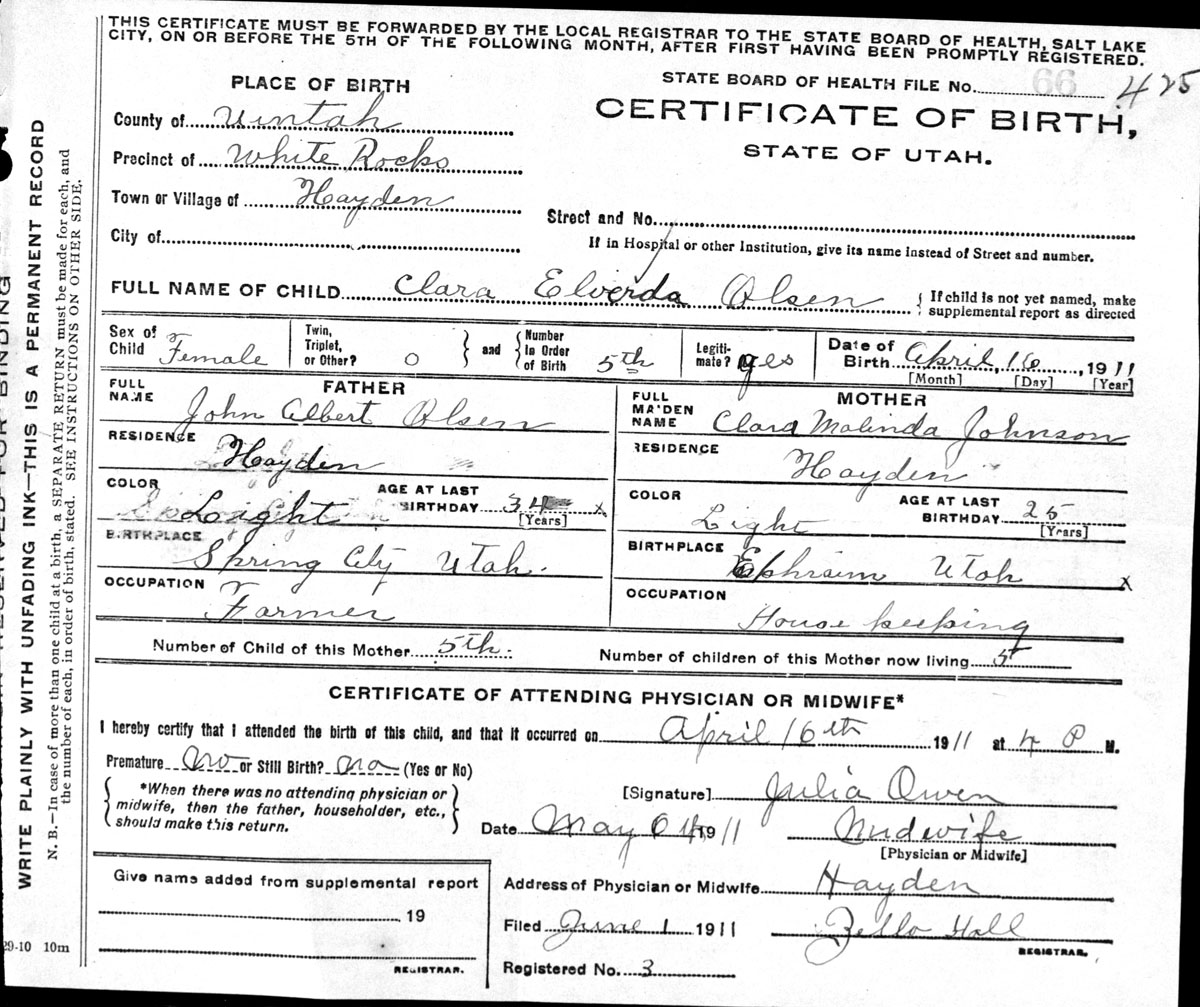 THIS CERTIFICATE MUST BE FORWARDED BY THE LOCAL REGISTRAR TO THE STATE BOARD OF HEALTH, SALT LAKE
CITY, ON OR BEFORE THE 5TH OF THE FOLLOWING MONTH, AFTER FIRST HAVING BEEN PROMPTLY REGISTERED.
STATE BOARD OF HEALTH FILE No. 66 425
PLACE OF BIRTH
CERTIFICATE OF BIRTH,
STATE OF UTAH.
County of Uintah
Precinct of White Rocks
Town or Village of Hayden
Street and No.
City of
If in Hospital or other Institution, give its name instead of Street and number.
FULL NAME OF CHILD Clara Elverda Olsen { If child is not yet named, make
supplemental report as directed
Sex of Child Female
Twin, Triplet, or Other? 0 } and { Number in Order of Birth 5th
Legiti-mate? yes
Date of Birth April 16, 1911
[Month] [Day] [Year]
FATHER
FULL NAME John Albert Olsen
RESIDENCE Hayden
COLOR Light AGE AT LAST BIRTHDAY 34 x
[Years]
BIRTHPLACE Spring City Utah.
OCCUPATION Farmer
MOTHER
FULL MAIDEN NAME Clara Malinda Johnson
RESIDENCE Hayden
COLOR Light AGE AT LAST BIRTHDAY 25
[Years]
BIRTHPLACE Ephraim Utah x
OCCUPATION House keeping
Number of Child of this Mother 5th. Number of children of this Mother now living 5
CERTIFICATE OF ATTENDING PHYSICIAN OR MIDWIFE*
I hereby certify that I attended the birth of this child, and that it occurred on April 16th 1911 at 4 P M.
Premature No or Still Birth? no (Yes or No)
{ *When there was no attending physician or
midwife, then the father, householder, etc.,
should make this return. }
[Signature] Julia Owen
Date May 1911 Midwife
[Physician or Midwife]
Give name added from supplemental report
19
REGISTRAR.
Address of Physician or Midwife Hayden
Filed June 1 1911 Hall
REGISTRAR.
Registered No. 3
RESERVED FOR BINDING
WRITE PLAINLY WITH UNFADING INK—THIS IS A PERMANENT RECORD
N. B.—In case of more than one child at a birth, a SEPARATE RETURN must be made for each, and
the number of each, in order of birth, stated. SEE INSTRUCTIONS ON OTHER SIDE.
29-10 10m